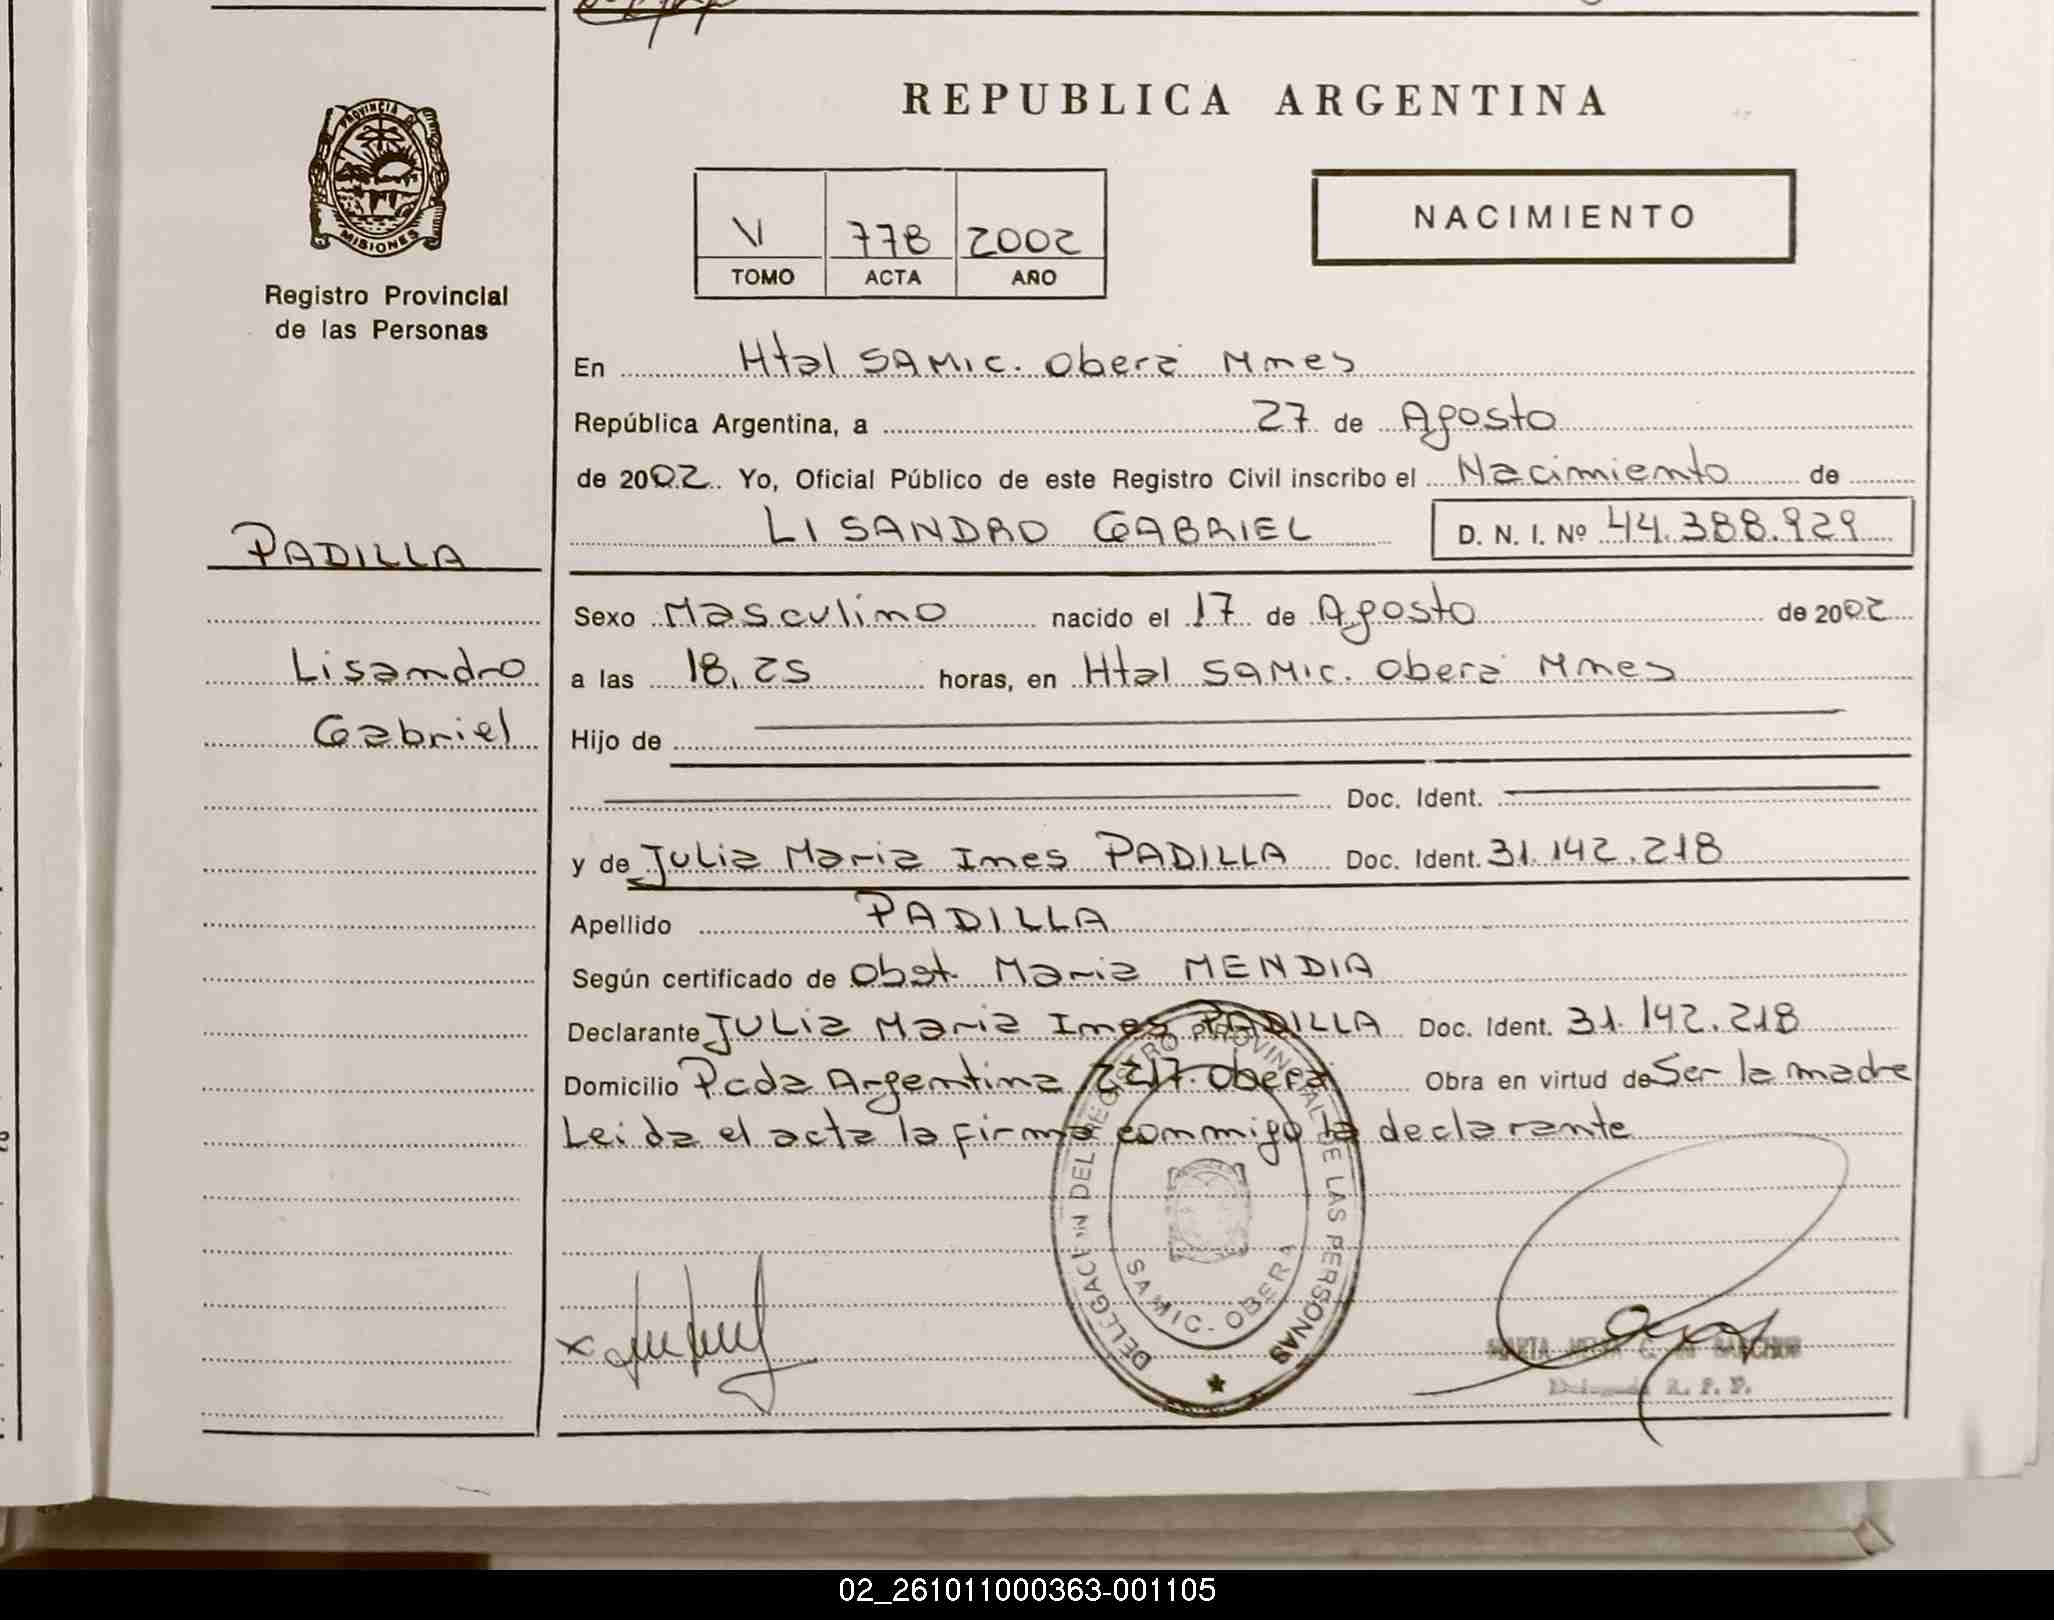 REPUBLICA ARGENTINA
PROVINCIA DE
MISIONES
Registro Provincial
de las Personas
V 778 2002
TOMO ACTA AÑO
NACIMIENTO
En Htal SAMIC. Oberá Mnes
República Argentina, a 27 de Agosto
de 2002. Yo, Oficial Público de este Registro Civil inscribo el Nacimiento de
LISANDRO GABRIEL D. N. I. Nº 44.388.929
PADILLA
Lisandro
Gabriel
Sexo Masculino nacido el 17 de Agosto de 2002
a las 18,25 horas, en Htal SAMIC. Oberá Mnes
Hijo de
Doc. Ident.
y de Julia Maria Ines PADILLA Doc. Ident. 31.142.218
Apellido PADILLA
Según certificado de Obst. Maria MENDIA
Declarante Julia Maria Ines PADILLA Doc. Ident. 31.142.218
Domicilio Pcda Argentina 2217. Oberá Obra en virtud de Ser la madre
Leida el acta la firma conmigo la declarante
DELEGACION DEL REGISTRO PROVINCIAL DE LAS PERSONAS
SAMIC. OBERA
MARTA
R. P. P.
02_261011000363-001105